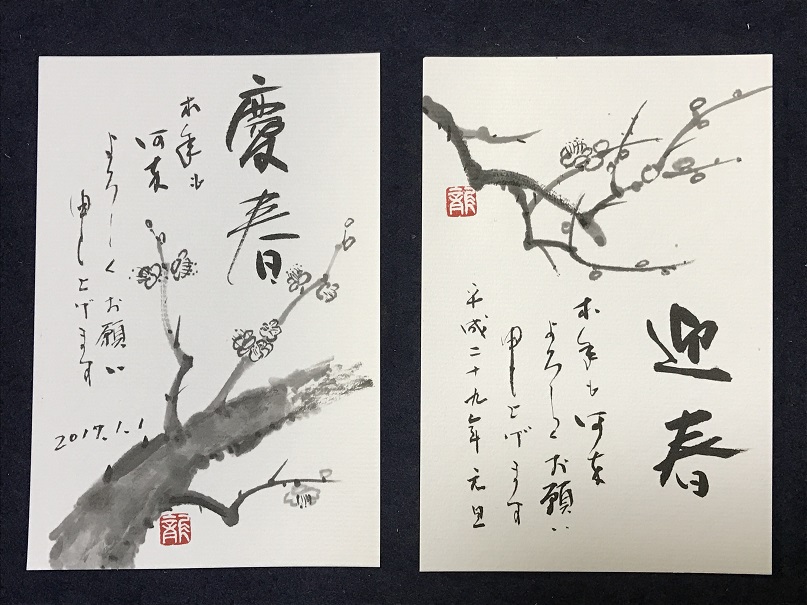 慶春
本年も
何卒
よろしくお願い
申し上げます
2017.1.1
迎春
本年も何卒
よろしくお願い
申し上げます
平成二十九年元旦